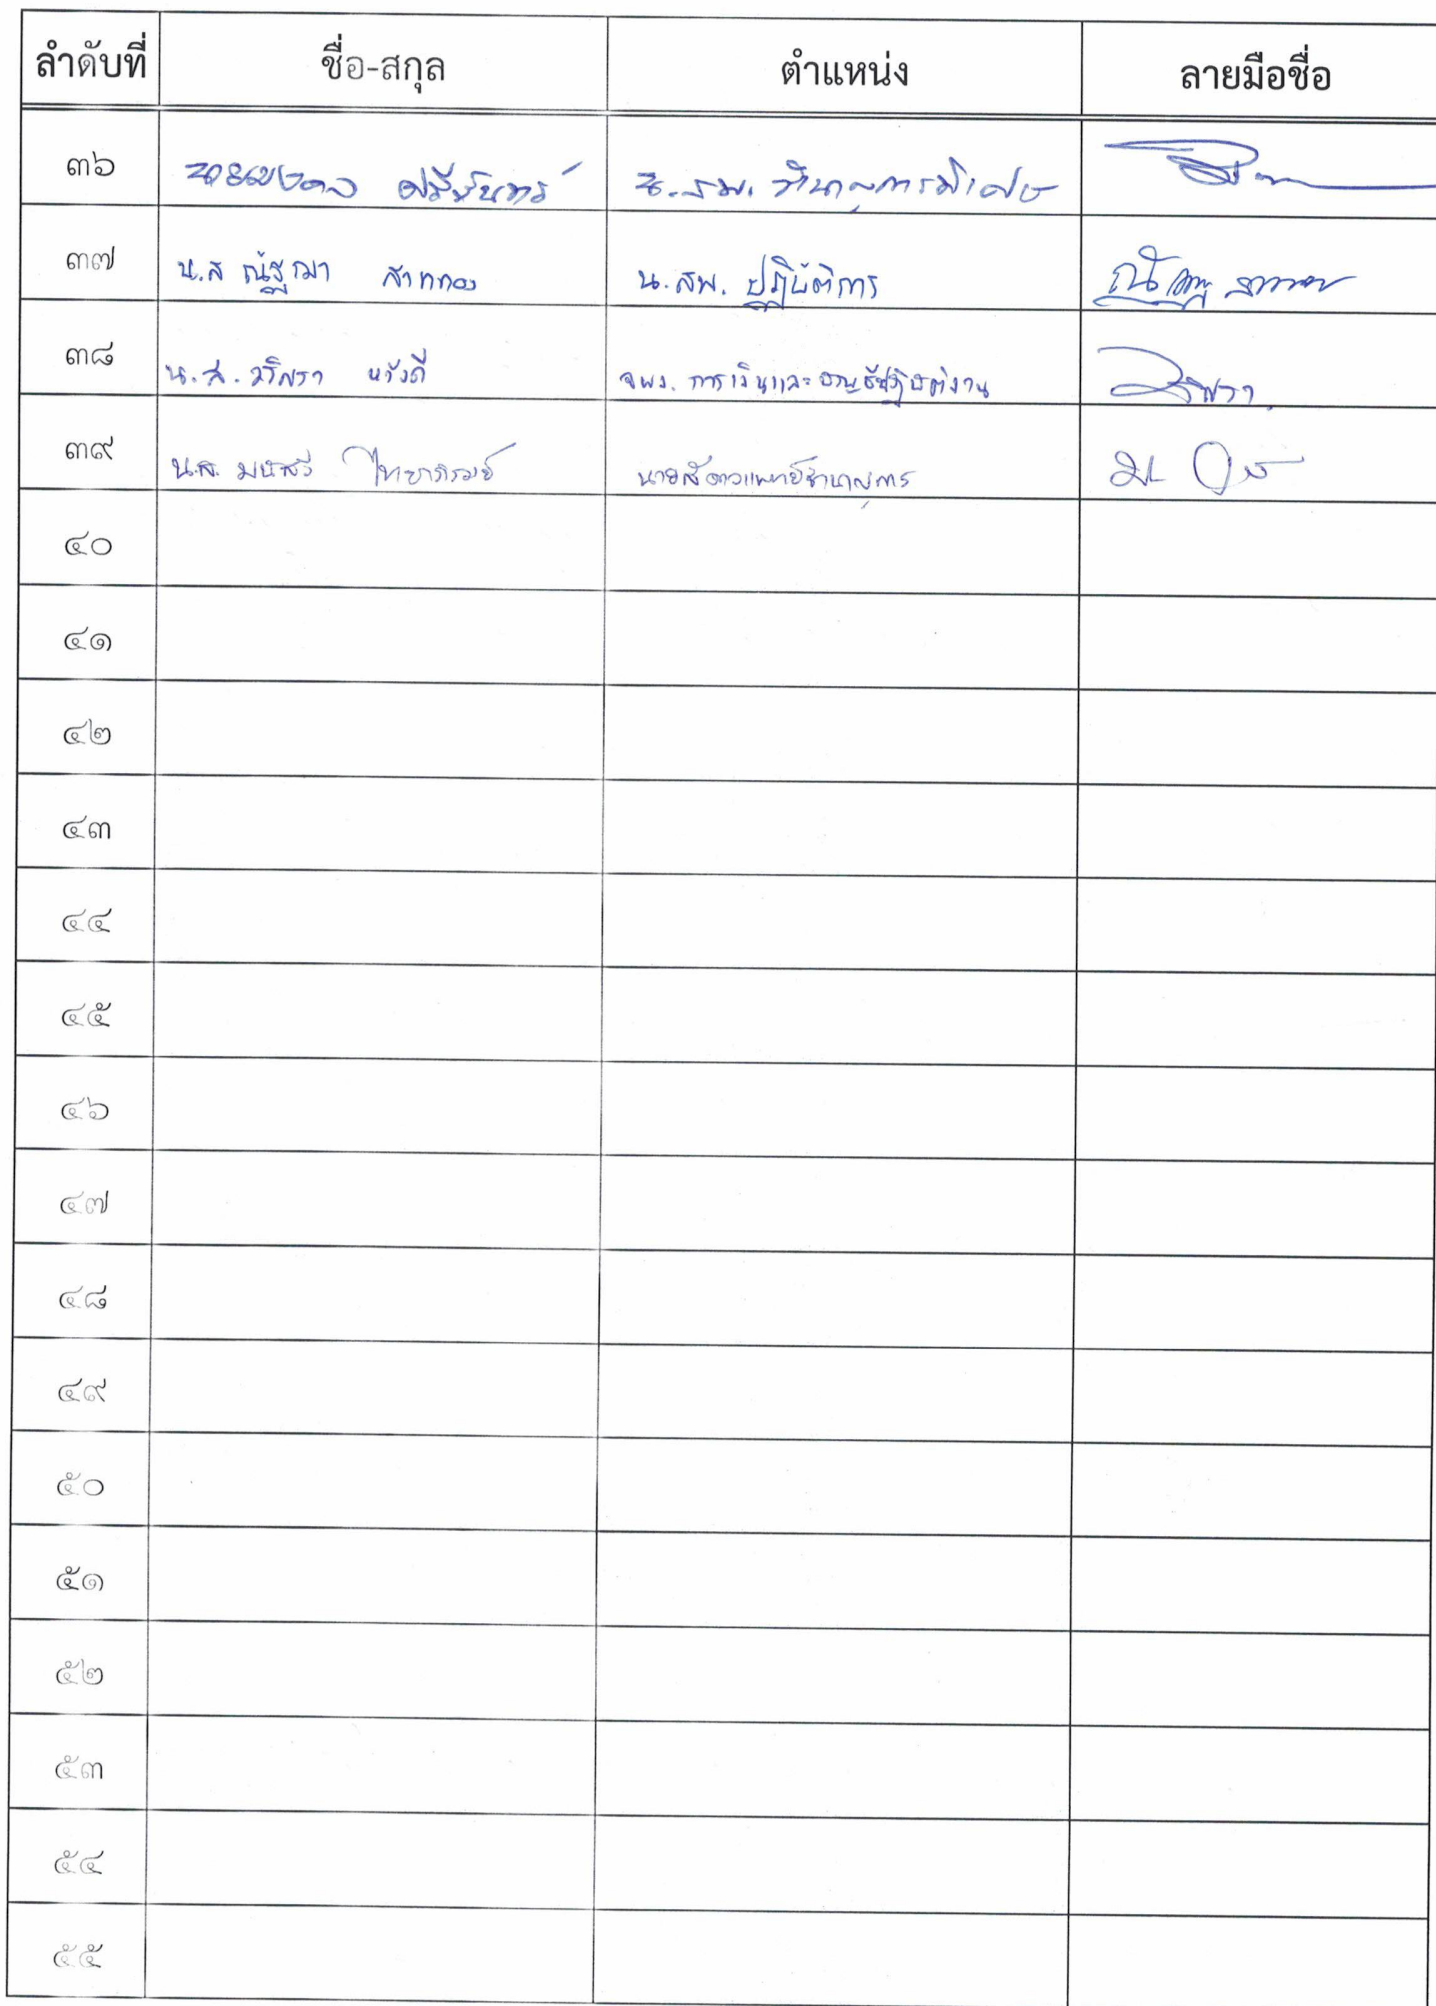 ลำดับที่ ชื่อ-สกุล ตำแหน่ง ลายมือชื่อ
๓๖ ศรีจันทร์ ชำนาญการพิเศษ
๓๗ น.ส ณัฐฌา สาททอง น.สพ. ปฏิบัติการ
๓๘ น.ส. วริศรา หวังดี จพง. การเงินและบัญชีปฏิบัติงาน วริศรา
๓๙ น.ส. นายสัตวแพทย์ชำนาญการ
๔๐
๔๑
๔๒
๔๓
๔๔
๔๕
๔๖
๔๗
๔๘
๔๙
๕๐
๕๑
๕๒
๕๓
๕๔
๕๕